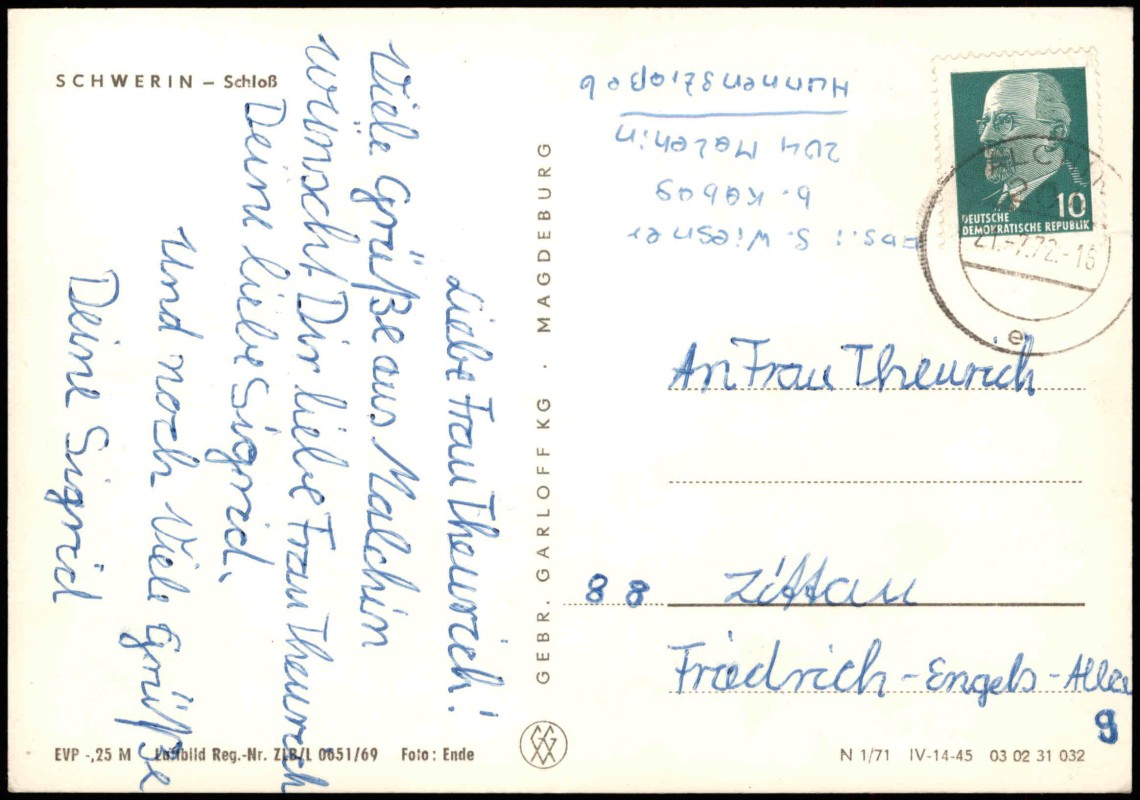 SCHWERIN – Schloß
Liebe Frau Theurich!
Viele Grüße aus Malchin
wünscht Dir liebe Frau Theurich
Deine liebe Sigrid.
Und noch Viele Grüße
Deine Sigrid
EVP -,25 M Luftbild Reg.-Nr. ZLB/L 0651/69 Foto: Ende
GEBR. GARLOFF KG · MAGDEBURG
Abs.: S. Wiesner
b. Kabus
204 Malchin
Hunnenstraße 6
DEUTSCHE
DEMOKRATISCHE REPUBLIK
10
21.-7.72.-16
e
An Frau Theurich
88 Zittau
Friedrich-Engels-Allee
9
N 1/71 IV-14-45 03 02 31 032